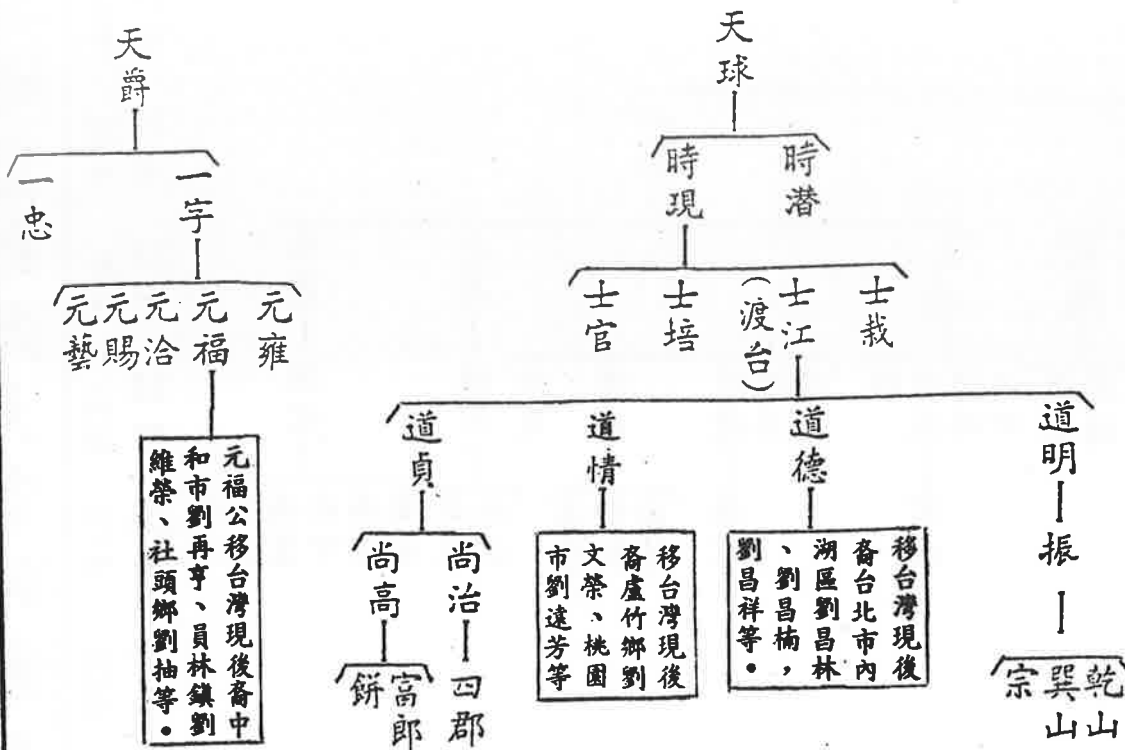 天球
時潛
時現
士栽
士江
（渡台）
士培
士官
道明
道德
道情
道貞
振
乾山
巽山
宗
移台灣現後
裔台北市內
湖區劉昌林
、劉昌楠，
劉昌祥等。
移台灣現後
裔盧竹鄉劉
文榮、桃園
市劉遠芳等
尚治
尚高
四郡
富郎
餅
天爵
一字
一忠
元雍
元福
元洽
元賜
元藝
元福公移台灣現後裔中
和市劉再亨、員林鎮劉
維榮、社頭鄉劉抽等。